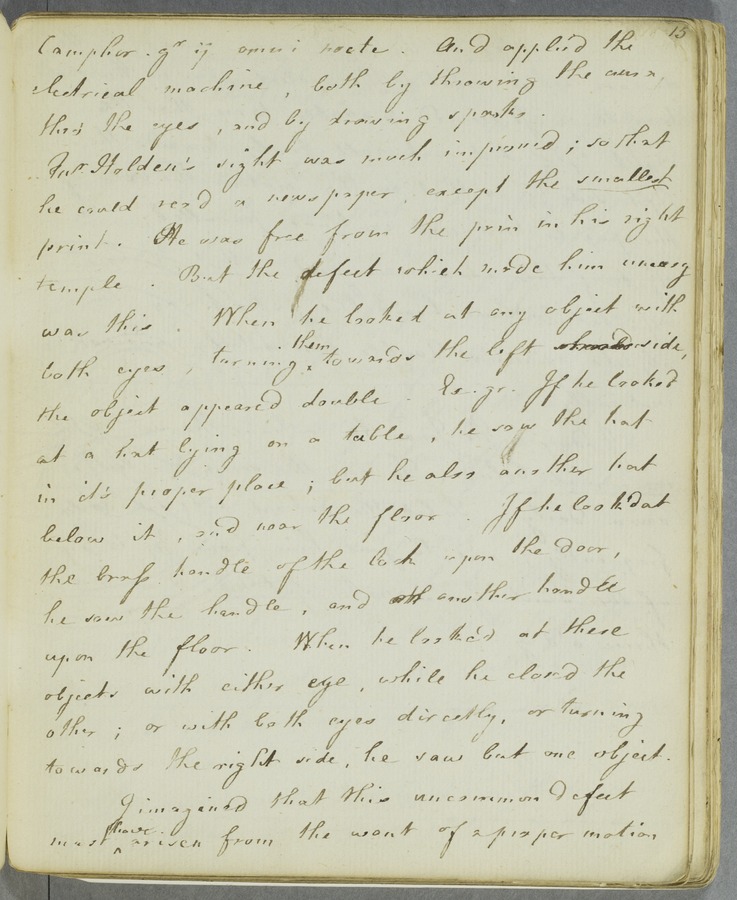 15
Camphor. gr ij omni nocte. And applied the
electrical machine, both by throwing the aura,
thro' the eyes, and by drawing sparks.
Jnr Holden's sight was much improved; so that
he could read a newspaper, except the smallest
print. He was free from the pain in his right
temple. But the defect which made him uneasy
was this. When he looked at any object with
both eyes, turning them towards the left side,
the object appeared double. Ex. gr. If he looked
at a hat lying on a table, he saw the hat
in it's proper place; but he also another hat
below it, and near the floor. If he look'd at
the brass handle of the lock upon the door,
he saw the handle, and another handle
upon the floor. When he look'd at these
objects with either eye, while he closed the
other; or with both eyes directly, or turning
towards the right side, he saw but one object.
I imagined that this uncommon defect
must have arisen from the want of a proper motion